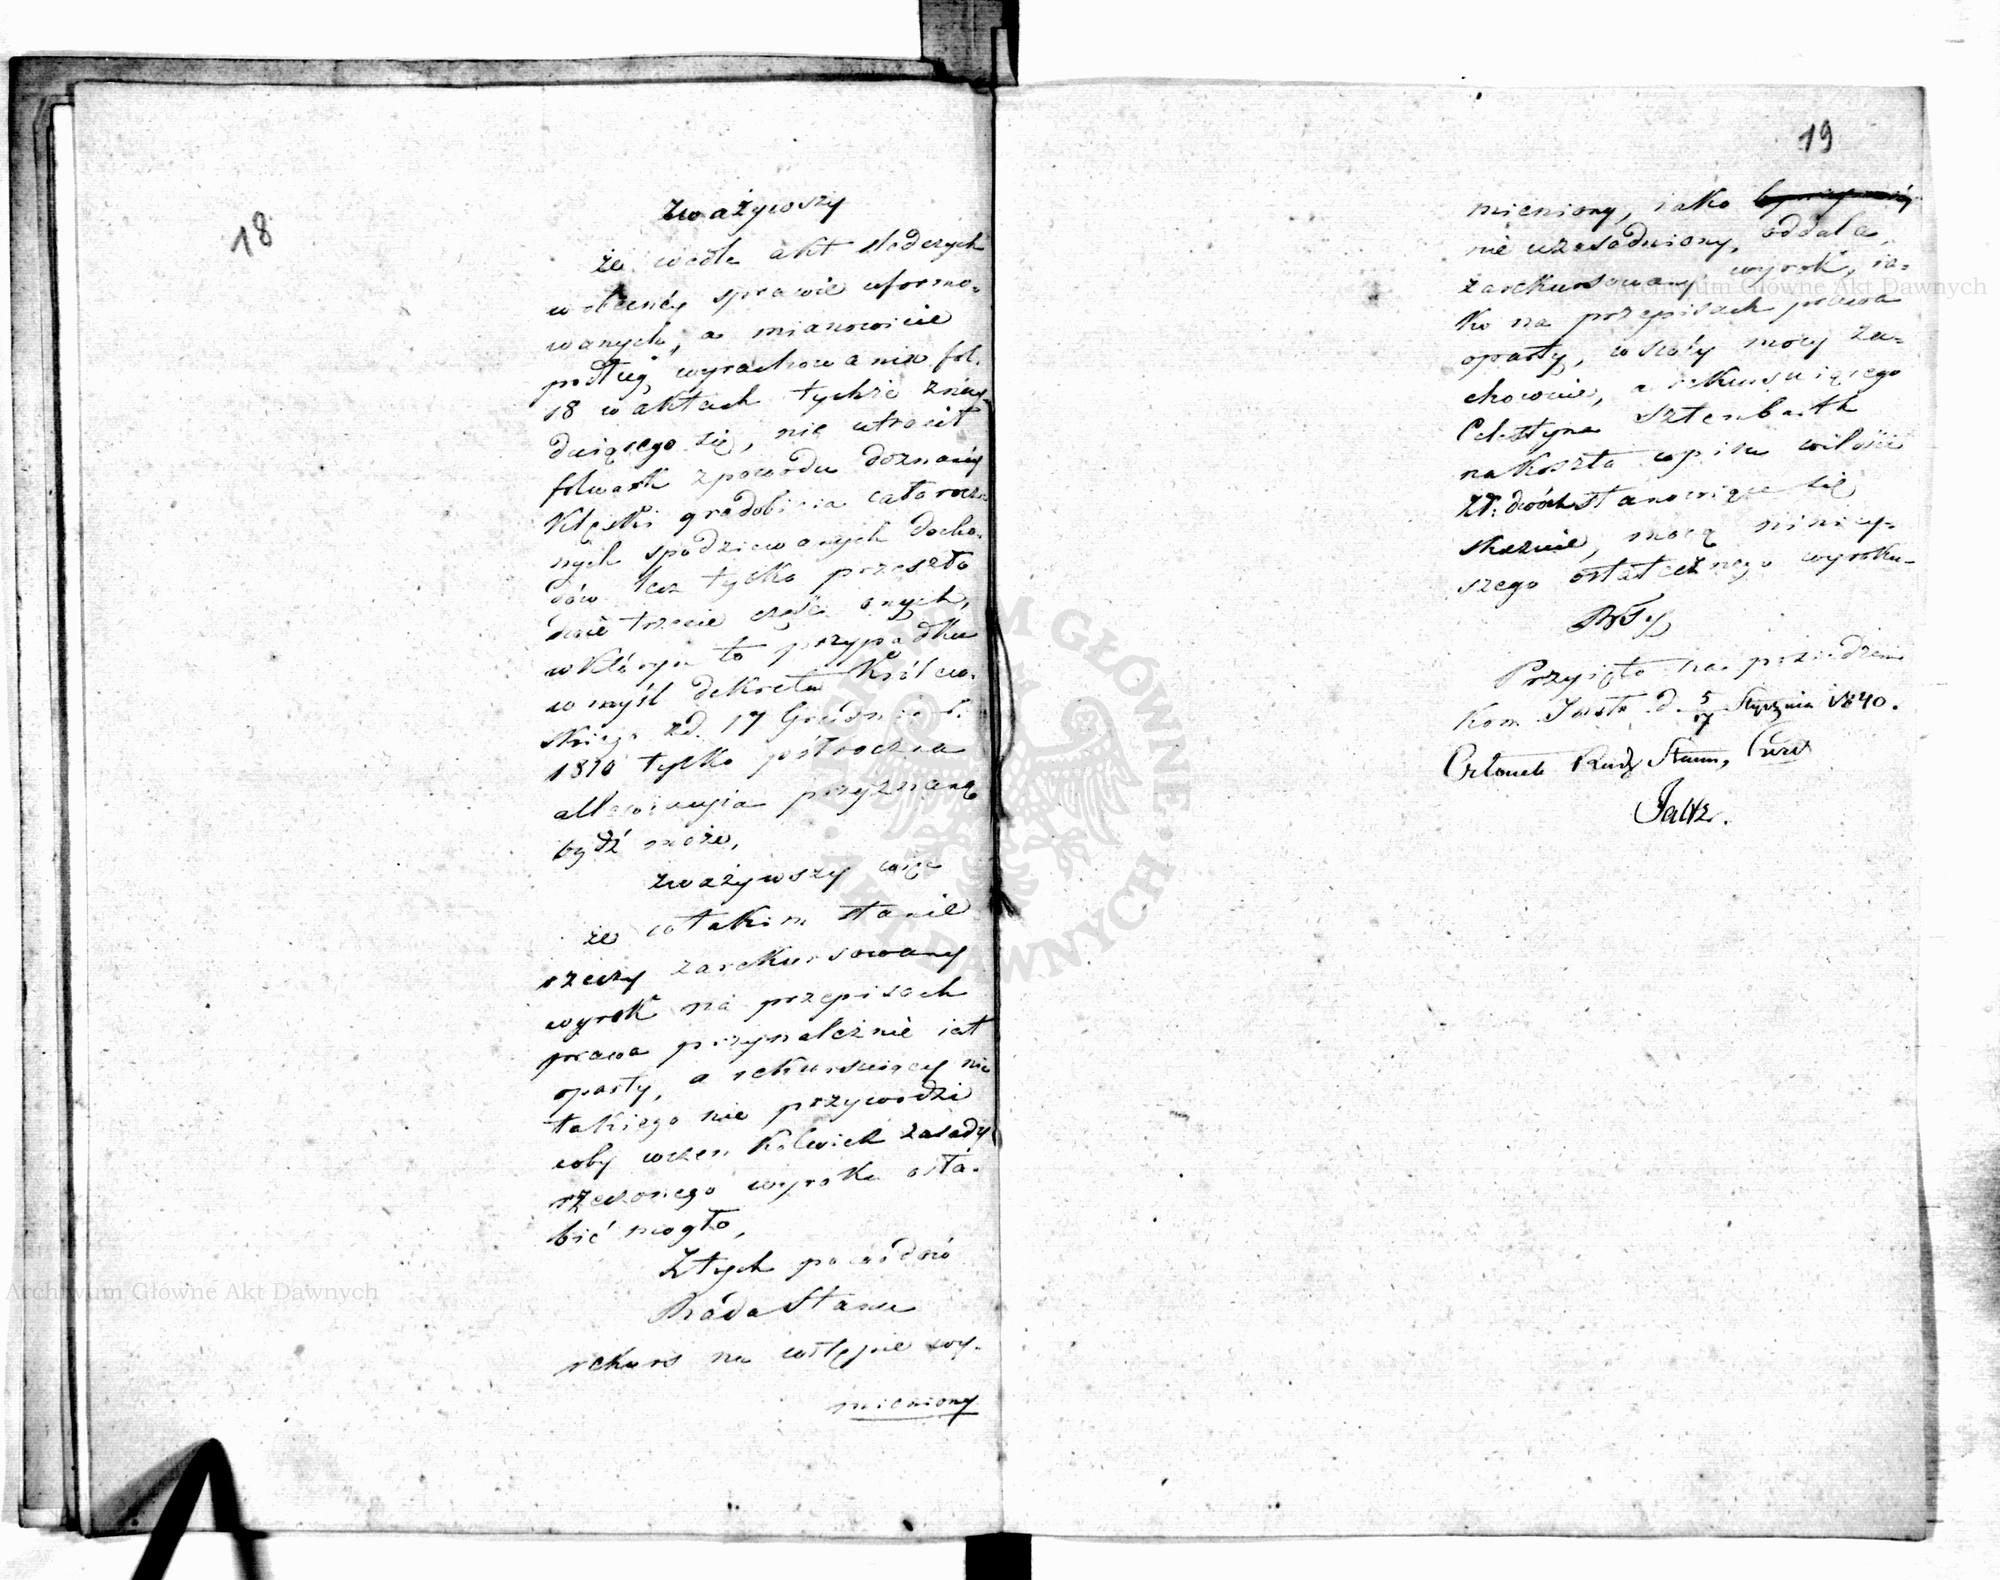 18
Zważywszy
że wedle akt śledczych
w obecnéy sprawie uformo-
wanych, a mianowicie
podług wyrachowania fol.
18 w aktach tychże znay-
duiącego się, nie utracił
folwark z powodu doznanéy
klęski gradobicia całorocz-
nych spodziewanych docho-
dów lecz tylko przeszło
dwie trzecie części onych,
w którym to przypadku
w myśl dekretu Królew-
skiego z d. 17 Grudnia r.
1810 tylko półroczna
allewiacyia przyznaną
bydź może,
Zważywszy więc
że w takim stanie
rzeczy zarekursowany
wyrok na przepisach
prawa przynależnie iest
oparty, a rekursuiący nic
takiego nie przywodzi
coby wczem kolwiek zasady
rzeczonego wyroku osła-
bić mogło,
Z tych powodów
Rada Stanu
rekurs na wstępie wy-
mieniony
19
mieniony, iako
nie uzasadniony, oddala,
zarekursowany wyrok, ia-
ko na przepisach prawa
oparty, w swéy mocy za-
chowuie, a rekursuiącego
Celestyna Sztenbarth
na koszta wpisu w ilości
Zł. dwóch stanowiące się
skazuie, mocą niniey-
szego ostatecznego wyroku.
Przyięto na posiedzeniu
Kom. Instr. d. 5/17 Stycznia 1840.
Członek Rady Stanu,
Archiwum Główne Akt Dawnych
Archiwum Główne Akt Dawnych
ARCHIWUM GŁÓWNE · AKT DAWNYCH ·